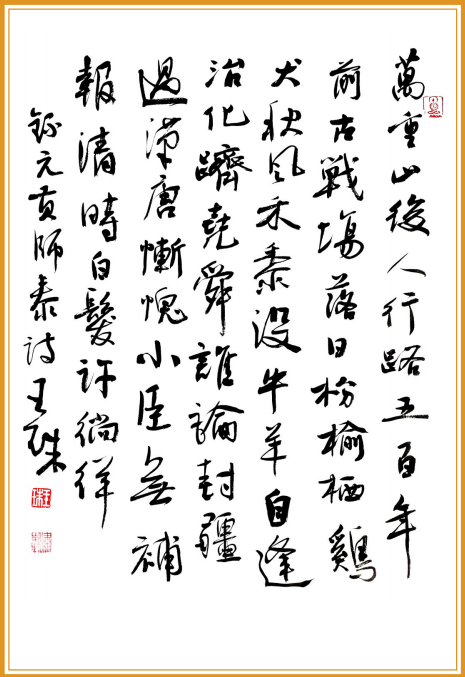 萬重山後人行路五百年
前古戰場落日枌榆栖鷄
犬秋風禾黍没牛羊自逢
治化躋堯舜誰論封疆
過漢唐慚愧小臣無補
報清時白髮許徜徉
錄元貢師泰詩王珠
王珠